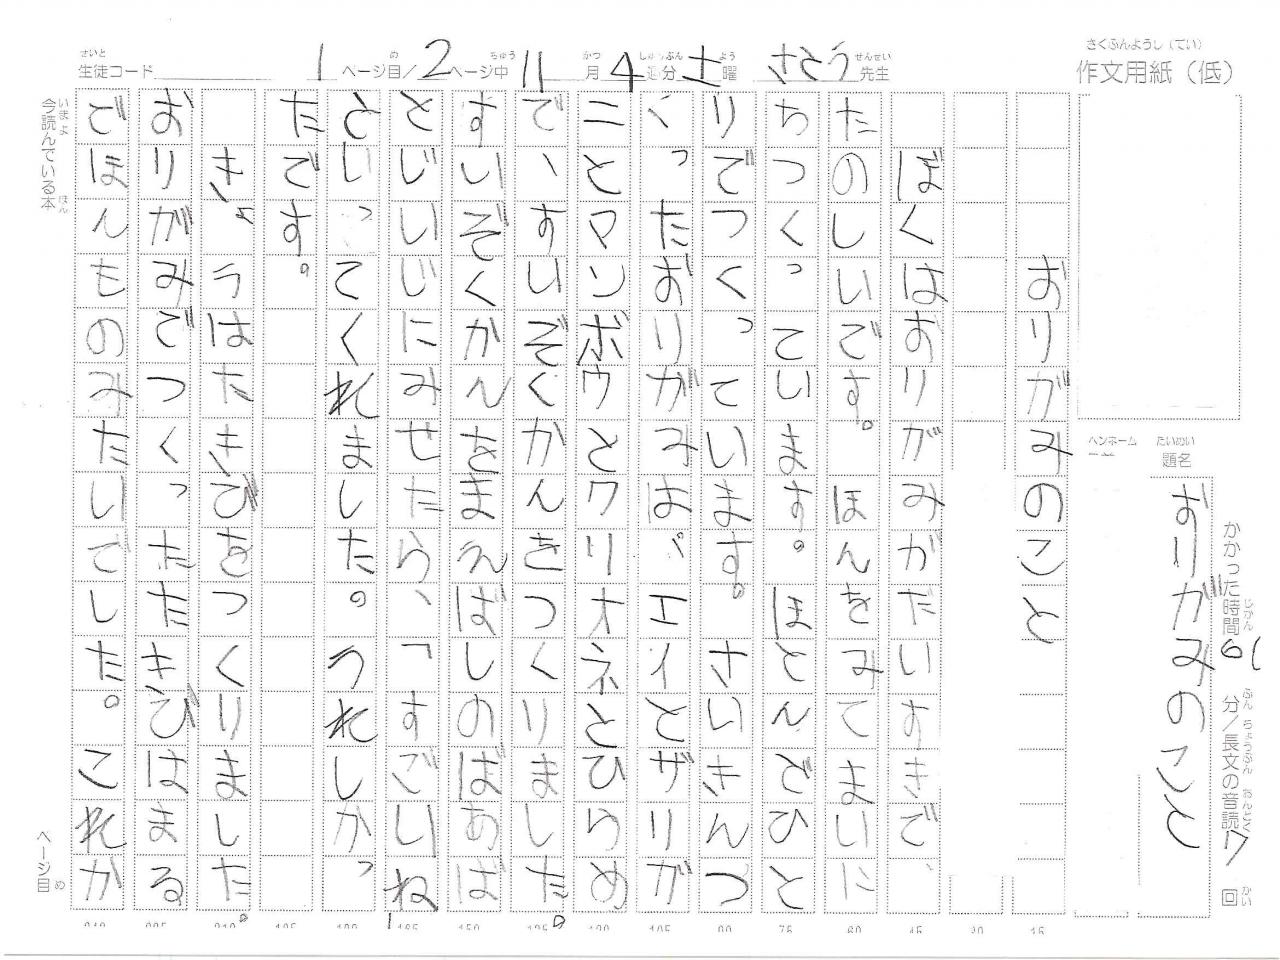 さくぶんようし（てい）
作文用紙（低）
生徒コード 1ページ目/2ページ中 11月4週分 土曜 さとう先生
かかった時間 分/長文の音読 7回
題名 おりがみのこと
ペンネーム
おりがみのこと
ぼくはおりがみがだいすきで、
たのしいです。ほんをみてまいに
ちつくっています。ほとんどひと
りでつくっています。さいきんつ
くったおりがみは、エイとザリガ
ニとマンボウとクリオネとひらめ
で、すいぞくかんをつくりました。
すいぞくかんをまえばしのばあば
とじいじにみせたら、「すごいね」
といってくれました。うれしかっ
たです。
きょうはたきびをつくりました。
おりがみでつくったたきびはまる
でほんものみたいでした。これか
今読んでいる本
ページ目